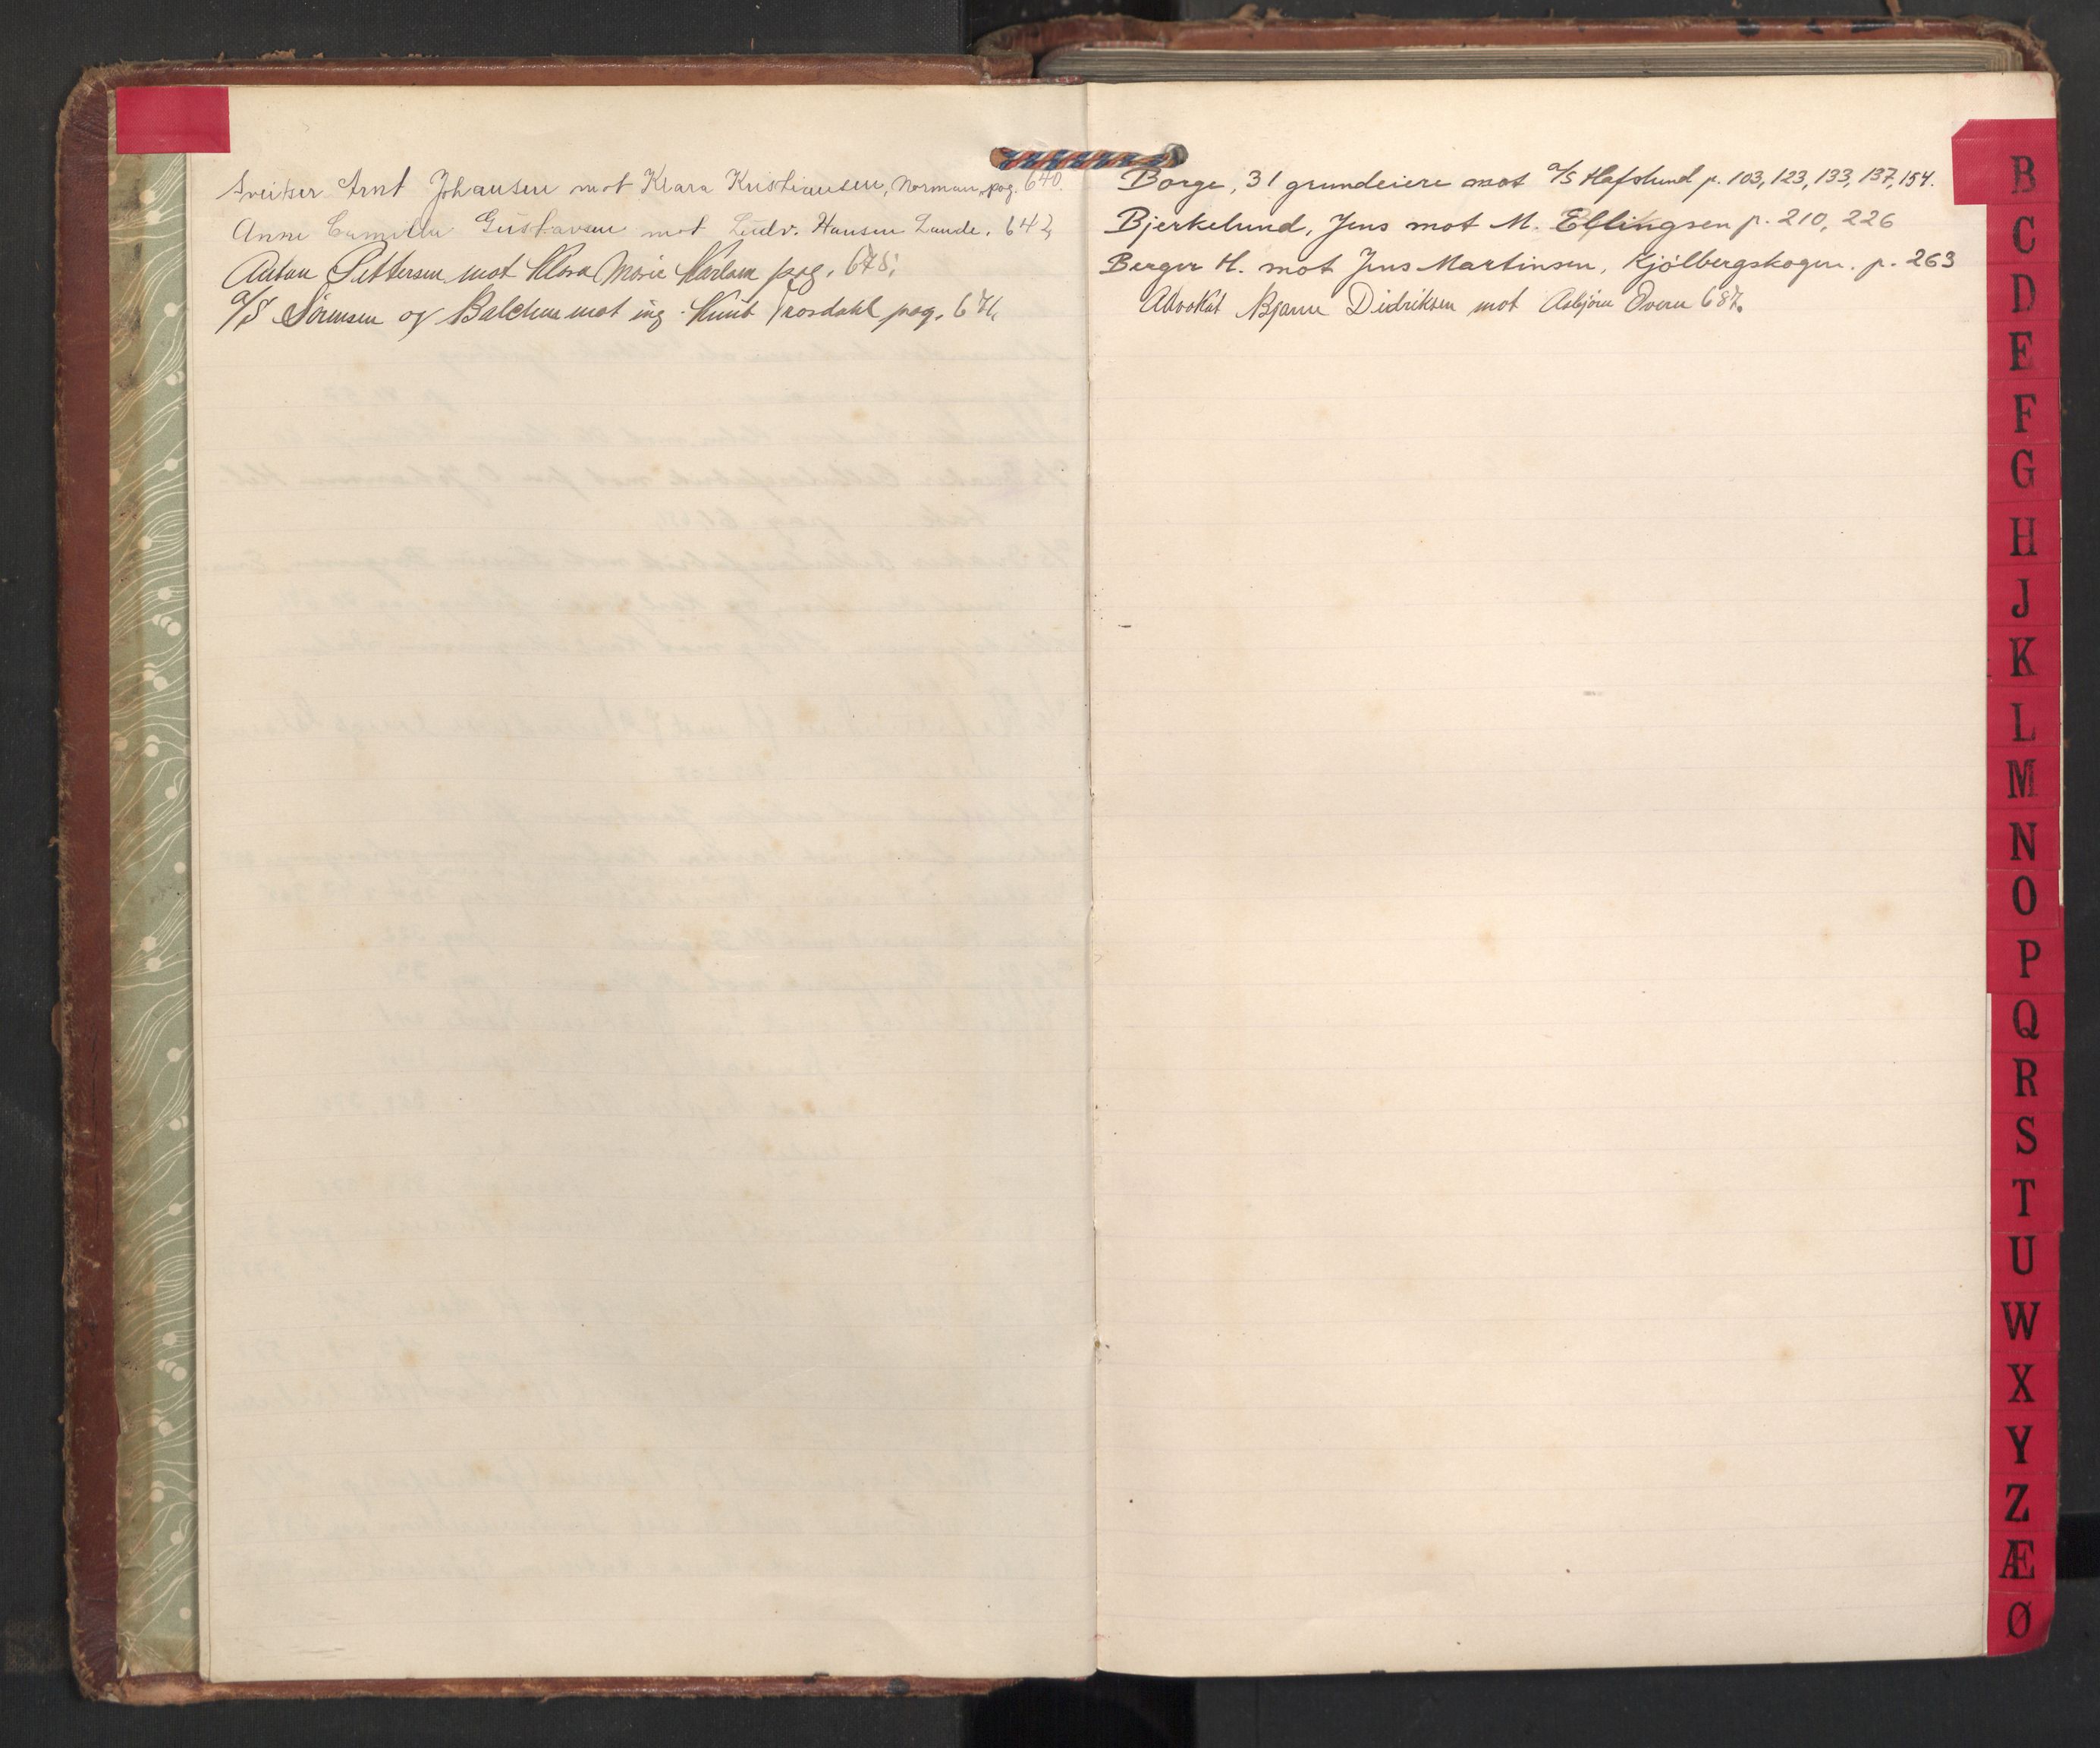 Sveitser Arnt Johansen mot Klara Kristiansen, Norman, pag. 640.
Anne Camilla Gustavsen mot Ludv. Hansen Lande. 642,
Anton Pettersen mot Klara Marie Karlsen pag. 678;
A/S Sørensen og Balchen mot ing. Knut pag. 671,
Borge, 31 grundeiere mot A/S Hafslund p. 103, 123, 133, 137, 154.
Bjerkelund, Jens mot M. Ellingsen p. 210, 226
Berger H. mot Jens Martinsen, Kjölbergskogen. p. 263
Advokat Bjarne Didriksen mot Asbjörn 687.
B
C
D
E
F
G
H
J
K
L
M
N
O
P
Q
R
S
T
U
W
X
Y
Z
Æ
Ø